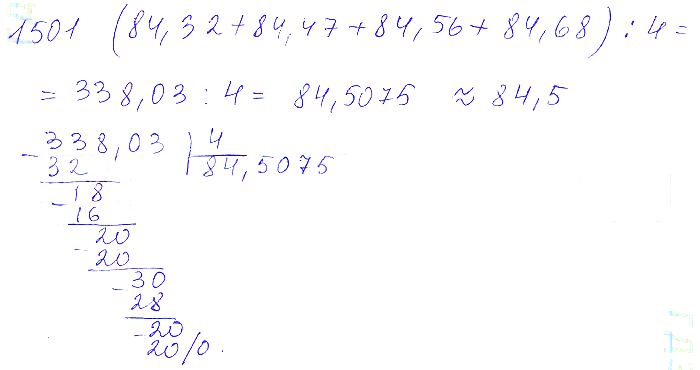 1501 (84,32+84,47+84,56+84,68) : 4 =
= 338,03 : 4 = 84,5075 ≈ 84,5
- 338,03 | 4
32 84,5075
- 18
16
20
- 20
- 30
28
- 20
20/0.